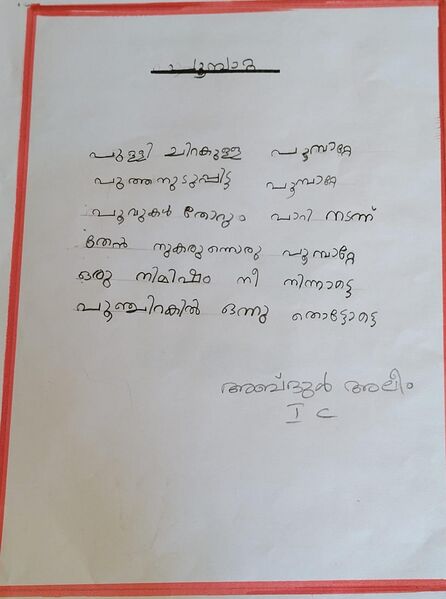 പൂമ്പാറ്റ
പുള്ളി ചിറകുള്ള പൂമ്പാറ്റേ
പുത്തനുടുപ്പിട്ട പൂമ്പാറ്റേ
പൂവുകൾ തോറും പാറി നടന്ന്
തേൻ നുകരുന്നൊരു പൂമ്പാറ്റേ
ഒരു നിമിഷം നീ നിന്നാട്ടെ
പൂഞ്ചിറകിൽ ഒന്നു തൊട്ടോട്ടെ
അബ്ദുൾ അലീം
I C